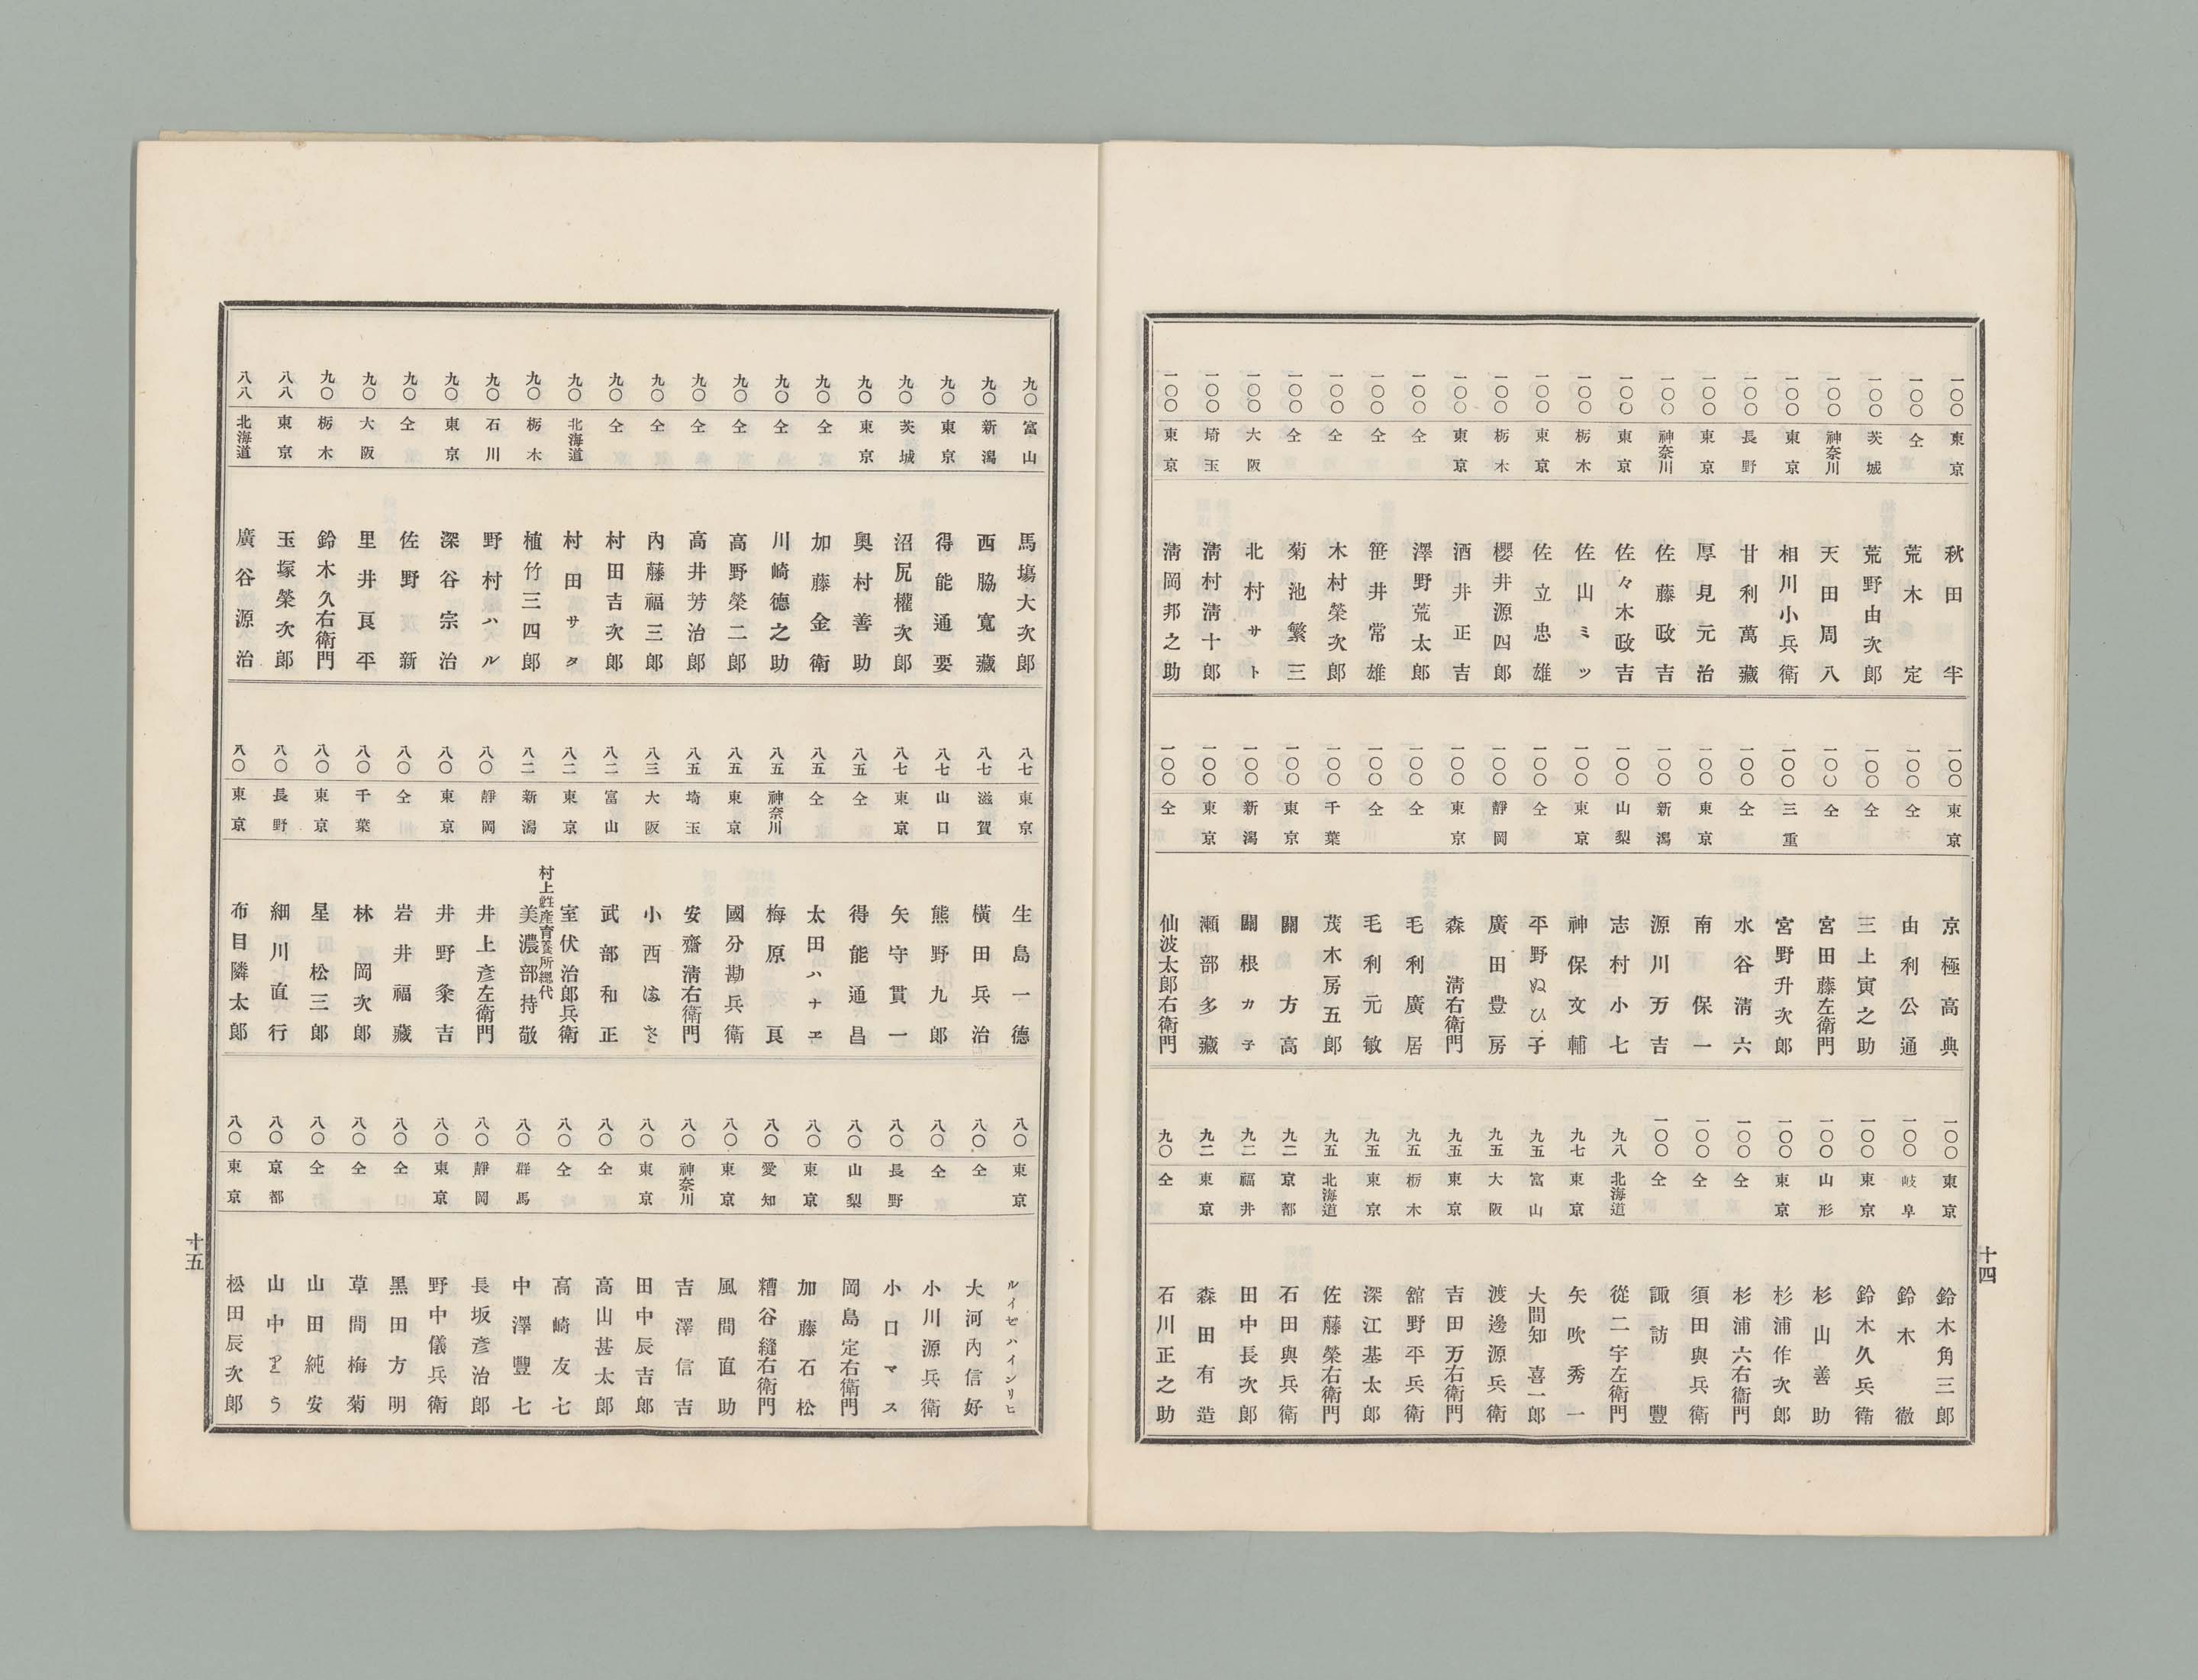 一〇〇 東京 秋田半
一〇〇 仝 荒木定
一〇〇 茨城 荒野由次郎
一〇〇 神奈川 天田周八
一〇〇 東京 相川小兵衛
一〇〇 長野 甘利萬藏
一〇〇 東京 厚見元治
一〇〇 神奈川 佐藤政吉
一〇〇 東京 佐々木政吉
一〇〇 栃木 佐山ミツ
一〇〇 東京 佐立忠雄
一〇〇 栃木 櫻井源四郎
一〇〇 東京 酒井正吉
一〇〇 仝 澤野荒太郎
一〇〇 仝 笹井常雄
一〇〇 仝 木村榮次郎
一〇〇 仝 菊池繁三
一〇〇 大阪 北村サト
一〇〇 埼玉 淸村淸十郎
一〇〇 東京 淸岡邦之助
一〇〇 東京 京極高典
一〇〇 仝 由利公通
一〇〇 仝 三上寅之助
一〇〇 仝 宮田藤左衛門
一〇〇 三重 宮野升次郎
一〇〇 仝 水谷淸六
一〇〇 東京 南保一
一〇〇 新潟 源川万吉
一〇〇 山梨 志村小七
一〇〇 東京 神保文輔
一〇〇 仝 平野ぬひ子
一〇〇 靜岡 廣田豊房
一〇〇 東京 森淸右衛門
一〇〇 仝 毛利廣居
一〇〇 仝 毛利元敏
一〇〇 千葉 茂木房五郎
一〇〇 東京 關方高
一〇〇 新潟 關根カテ
一〇〇 東京 瀬部多藏
一〇〇 仝 仙波太郎右衛門
一〇〇 東京 鈴木角三郎
一〇〇 岐阜 鈴木徹
一〇〇 東京 鈴木久兵衛
一〇〇 山形 杉山善助
一〇〇 東京 杉浦作次郎
一〇〇 仝 杉浦六右衞門
一〇〇 仝 須田與兵衛
一〇〇 仝 諏訪豐
九八 北海道 從二宇左衛門
九七 東京 矢吹秀一
九五 富山 大間知喜一郎
九五 大阪 渡邊源兵衛
九五 東京 吉田万右衛門
九五 栃木 舘野平兵衛
九五 東京 深江基太郎
九五 北海道 佐藤榮右衛門
九二 京都 石田與兵衛
九二 福井 田中長次郎
九二 東京 森田有造
九〇 仝 石川正之助
十四
九〇 富山 馬塲大次郎
九〇 新潟 西脇寛藏
九〇 東京 得能通要
九〇 茨城 沼尻權次郎
九〇 東京 奧村善助
九〇 仝 加藤金衛
九〇 仝 川崎德之助
九〇 仝 高野榮二郎
九〇 仝 高井芳治郎
九〇 仝 內藤福三郎
九〇 仝 村田吉次郎
九〇 北海道 村田サタ
九〇 栃木 植竹三四郎
九〇 石川 野村ハル
九〇 東京 深谷宗治
九〇 仝 佐野新
九〇 大阪 里井亙平
九〇 栃木 鈴木久右衛門
八八 東京 玉塚榮次郎
八八 北海道 廣谷源治
八七 東京 生島一德
八七 滋賀 橫田兵治
八七 山口 熊野九郎
八七 東京 矢守貫一
八五 仝 得能通昌
八五 仝 太田ハナヱ
八五 神奈川 梅原亙
八五 東京 國分勘兵衛
八五 埼玉 安齋淸右衛門
八三 大阪 小西はさ
八二 富山 武部和正
八二 東京 室伏治郎兵衛
八二 新潟 村上甦產育養所總代 美濃部持敬
八〇 靜岡 井上彥左衛門
八〇 東京 井野粂吉
八〇 仝 岩井福藏
八〇 千葉 林岡次郎
八〇 東京 星松三郎
八〇 長野 細川直行
八〇 東京 布目隣太郎
八〇 東京 ルイゼハインリヒ
八〇 仝 大河內信好
八〇 仝 小川源兵衛
八〇 長野 小口マス
八〇 山梨 岡島定右衛門
八〇 東京 加藤石松
八〇 愛知 糟谷縫右衛門
八〇 東京 風間直助
八〇 神奈川 吉澤信吉
八〇 東京 田中辰吉郎
八〇 仝 高山甚太郎
八〇 仝 高崎友七
八〇 群馬 中澤豐七
八〇 靜岡 長坂彥治郎
八〇 東京 野中儀兵衛
八〇 仝 黒田方明
八〇 仝 草間梅菊
八〇 仝 山田純安
八〇 京都 山中う
八〇 東京 松田辰次郎
十五